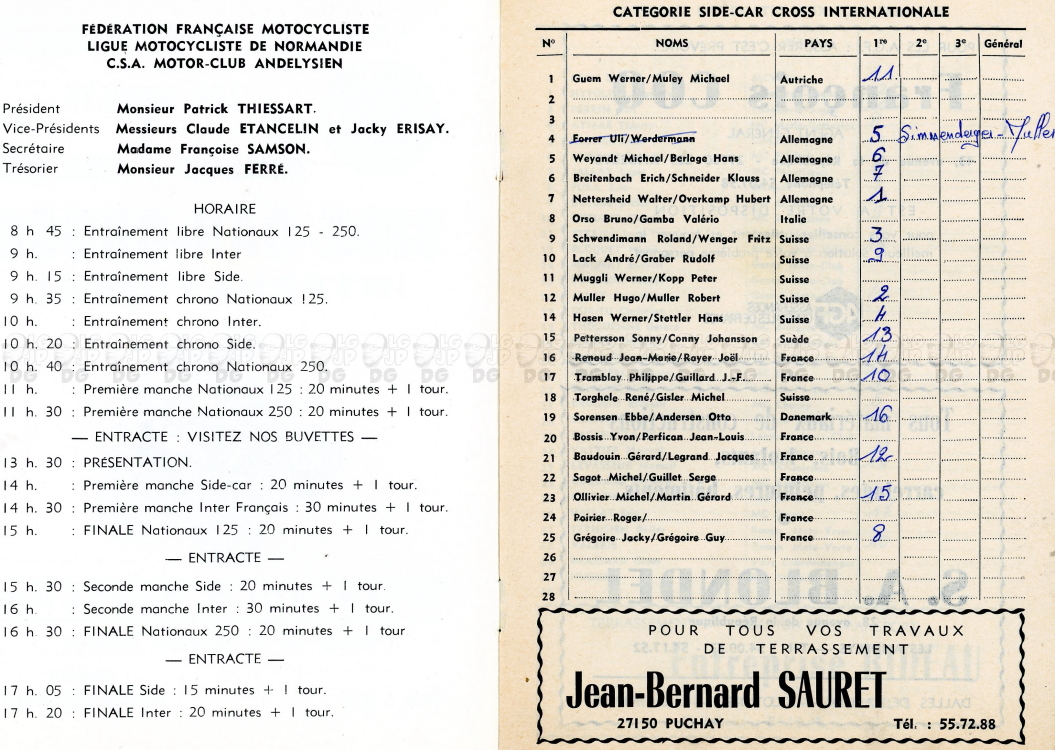 FÉDÉRATION FRANÇAISE MOTOCYCLISTE
LIGUE MOTOCYCLISTE DE NORMANDIE
C.S.A. MOTOR-CLUB ANDELYSIEN
Président Monsieur Patrick THIESSART.
Vice-Présidents Messieurs Claude ETANCELIN et Jacky ERISAY.
Secrétaire Madame Françoise SAMSON.
Trésorier Monsieur Jacques FERRÉ.
HORAIRE
8 h 45 : Entraînement libre Nationaux 125 - 250.
9 h. : Entraînement libre Inter
9 h. 15 : Entraînement libre Side.
9 h. 35 : Entraînement chrono Nationaux 125.
10 h. : Entraînement chrono Inter.
10 h. 20 : Entraînement chrono Side.
10 h. 40 : Entraînement chrono Nationaux 250.
11 h. : Première manche Nationaux 125 : 20 minutes + 1 tour.
11 h. 30 : Première manche Nationaux 250 : 20 minutes + 1 tour.
— ENTRACTE : VISITEZ NOS BUVETTES —
13 h. 30 : PRÉSENTATION.
14 h. : Première manche Side-car : 20 minutes + 1 tour.
14 h. 30 : Première manche Inter Français : 30 minutes + 1 tour.
15 h. : FINALE Nationaux 125 : 20 minutes + 1 tour.
— ENTRACTE —
15 h. 30 : Seconde manche Side : 20 minutes + 1 tour.
16 h. : Seconde manche Inter : 30 minutes + 1 tour.
16 h. 30 : FINALE Nationaux 250 : 20 minutes + 1 tour
— ENTRACTE —
17 h. 05 : FINALE Side : 15 minutes + 1 tour.
17 h. 20 : FINALE Inter : 20 minutes + 1 tour.
CATEGORIE SIDE-CAR CROSS INTERNATIONALE
N° NOMS PAYS 1re 2e 3e Général
1 Guem Werner/Muley Michael Autriche 11
2
3
4 Forrer Uli/Werdermann Allemagne 5 Simmendinger-Muller
5 Weyandt Michael/Berlage Hans Allemagne 6
6 Breitenbach Erich/Schneider Klauss Allemagne 7
7 Nettersheid Walter/Overkamp Hubert Allemagne 1
8 Orso Bruno/Gamba Valério Italia
9 Schwendimann Roland/Wenger Fritz Suisse 3
10 Lack André/Graber Rudolf Suisse 9
11 Muggli Werner/Kopp Peter Suisse
12 Muller Hugo/Muller Robert Suisse 2
14 Hasen Werner/Stettler Hans Suisse 4
15 Pettersson Sonny/Conny Johansson Suède 13
16 Renaud Jean-Marie/Rayer Joël France 14
17 Tramblay Philippe/Guillard J.-F. France 10
18 Torghele René/Gisler Michel Suisse
19 Sorensen Ebbe/Andersen Otto Danemark 16
20 Bossis Yvon/Perfican Jean-Louis France
21 Baudouin Gérard/Legrand Jacques France 12
22 Sagot Michel/Guillet Serge France
23 Ollivier Michel/Martin Gérard France 15
24 Poirier Roger/ France
25 Grégoire Jacky/Grégoire Guy France 8
26
27
28
POUR TOUS VOS TRAVAUX
DE TERRASSEMENT
Jean-Bernard SAURET
27150 PUCHAY Tél. : 55.72.88